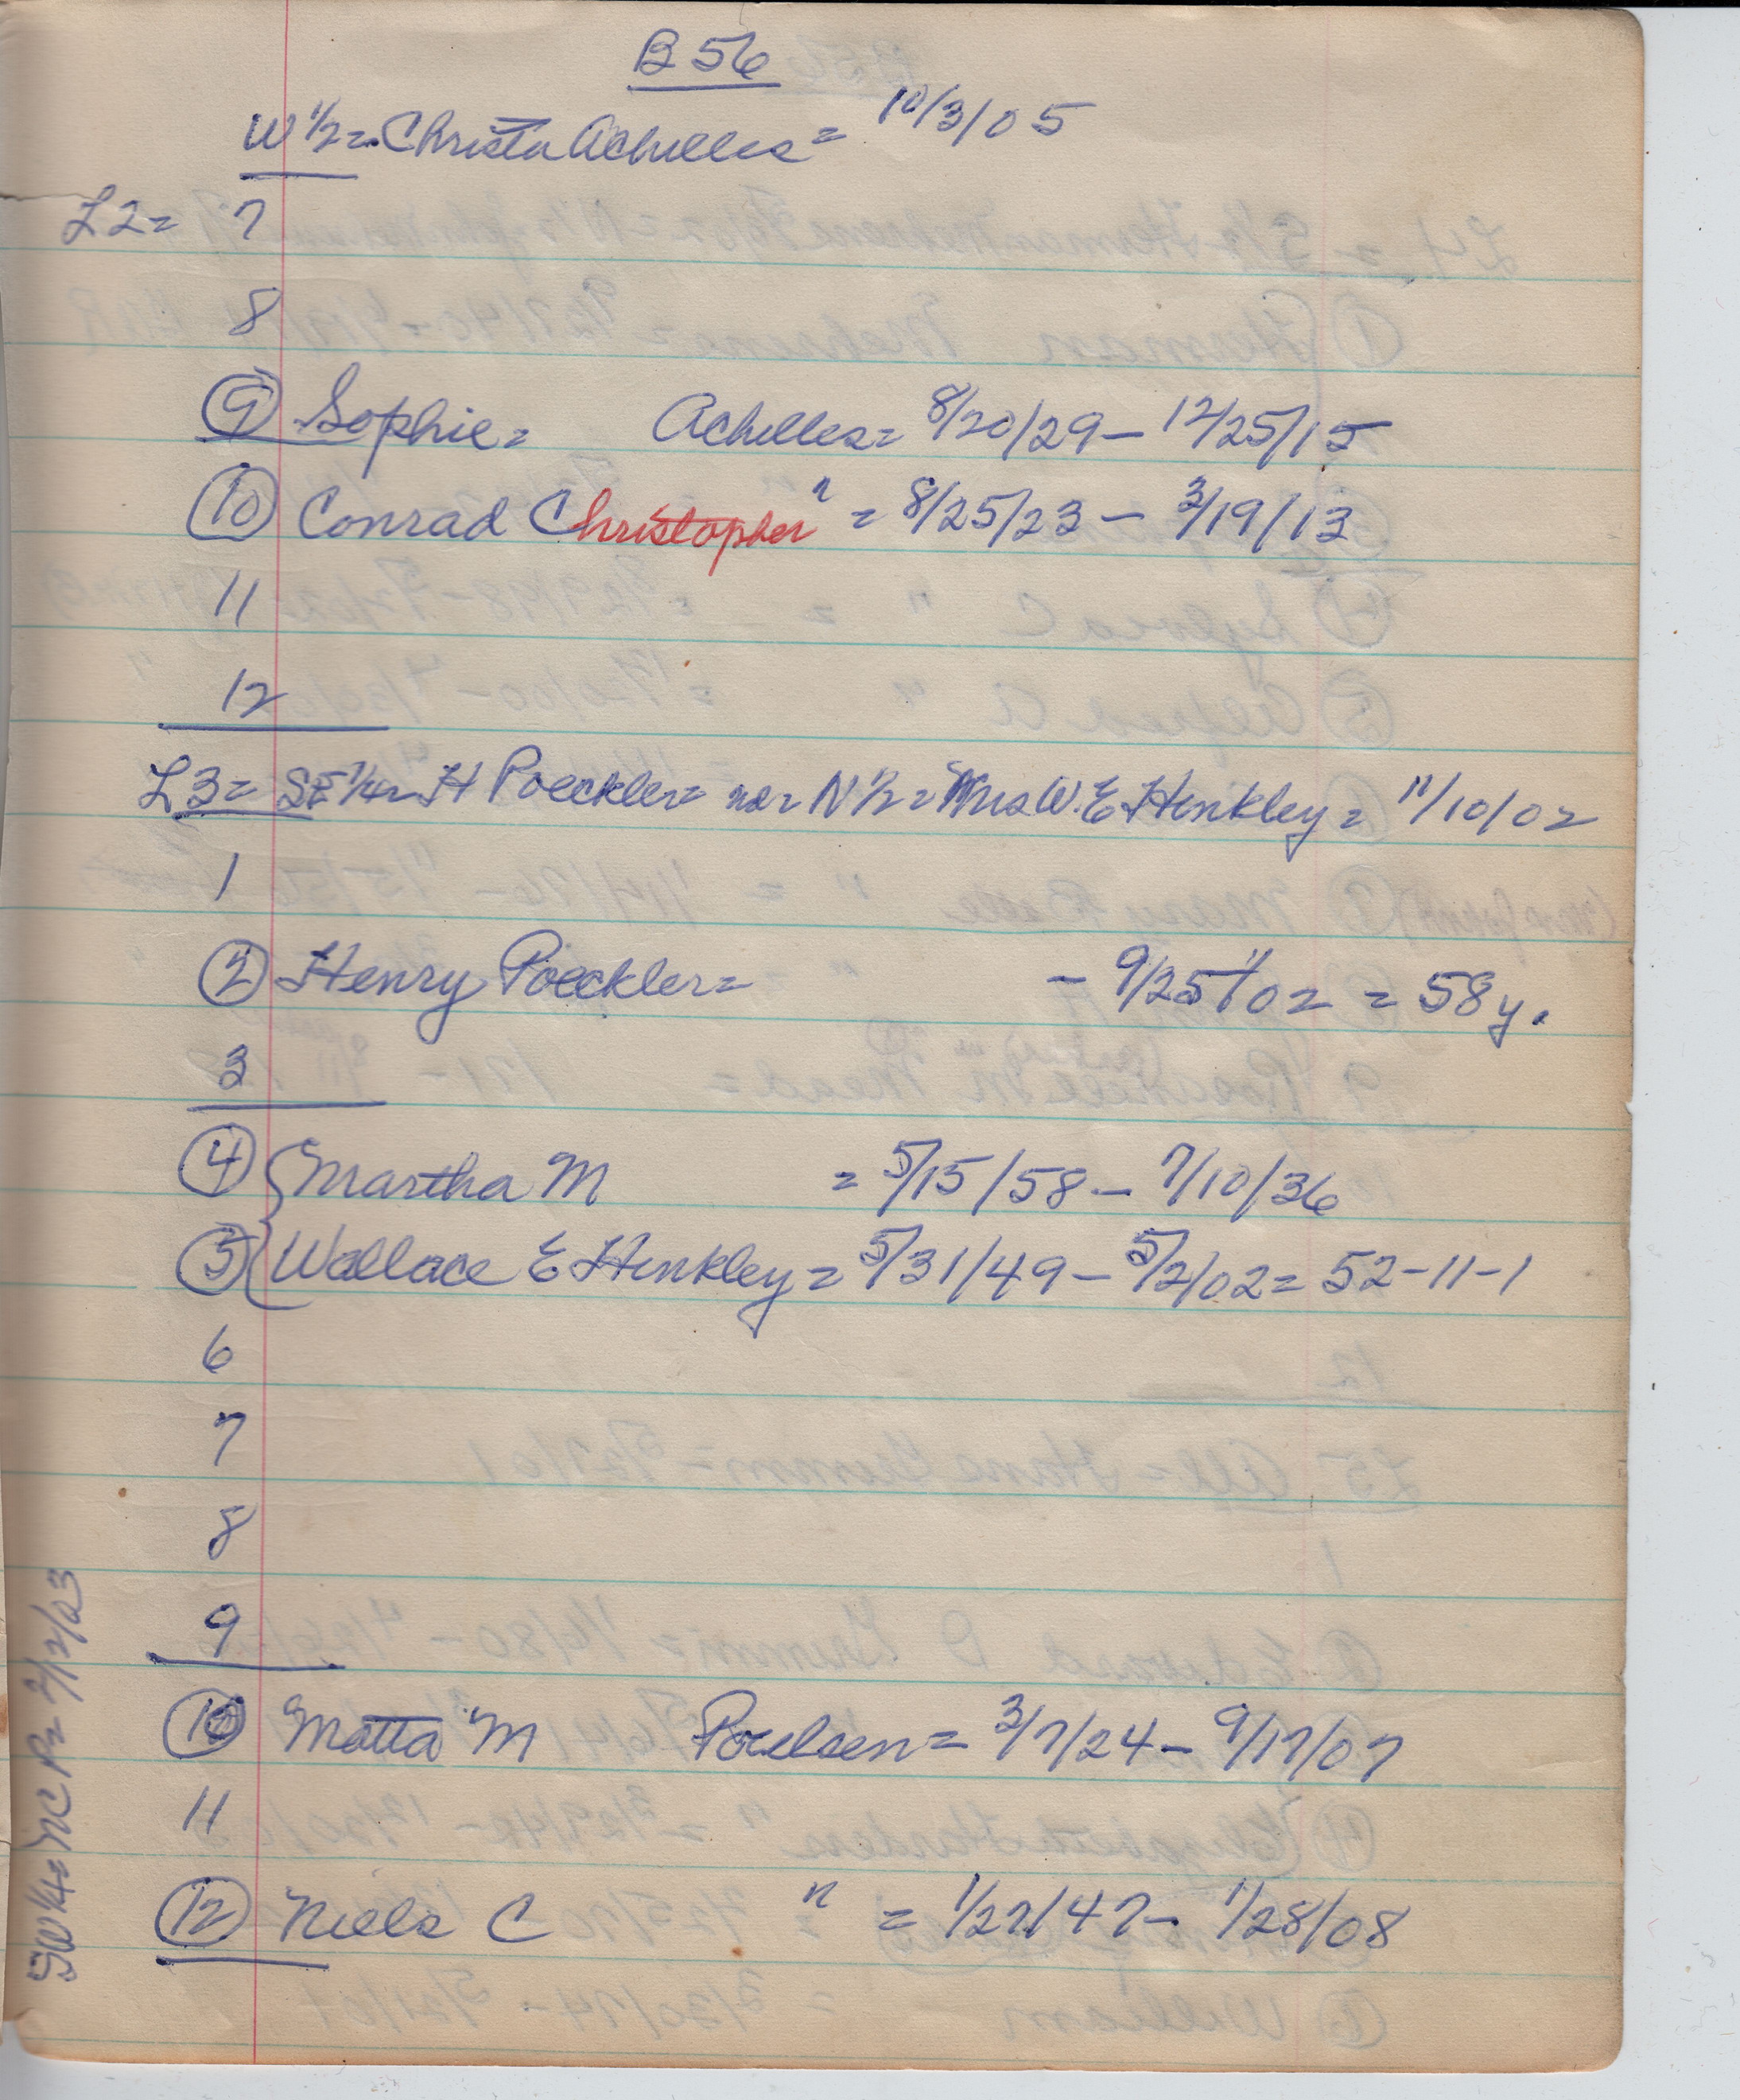 B 56
W 1/2 = Christa Achilles = 10/3/05
L2 = 7
8
9 Sophie = Achilles = 8/20/29 – 12/25/15
10 Conrad Christopher " = 8/25/23 – 3/19/13
11
12
L3 = SE 1/4 = H Poeckler = no = N 1/2 = Mrs W. E Hinkley = 11/10/02
1
2 Henry Poeckler = – 9/25/02 = 58 y.
3
4 Martha M = 5/15/58 – 7/10/36
5 Wallace E Hinkley = 5/31/49 – 5/2/02 = 52-11-1
6
7
8
9
10 Matta M Poulsen = 3/7/24 – 9/17/07
11
12 Niels C " = 1/27/47 – 1/28/08
SW 1/4 = NC P=